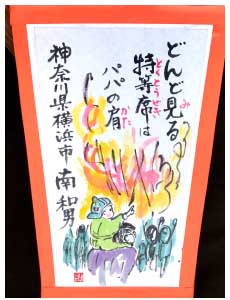 どんど見る
特等席は
パパの肩
神奈川県横浜市 南 和男
み
とくとうせき
かた